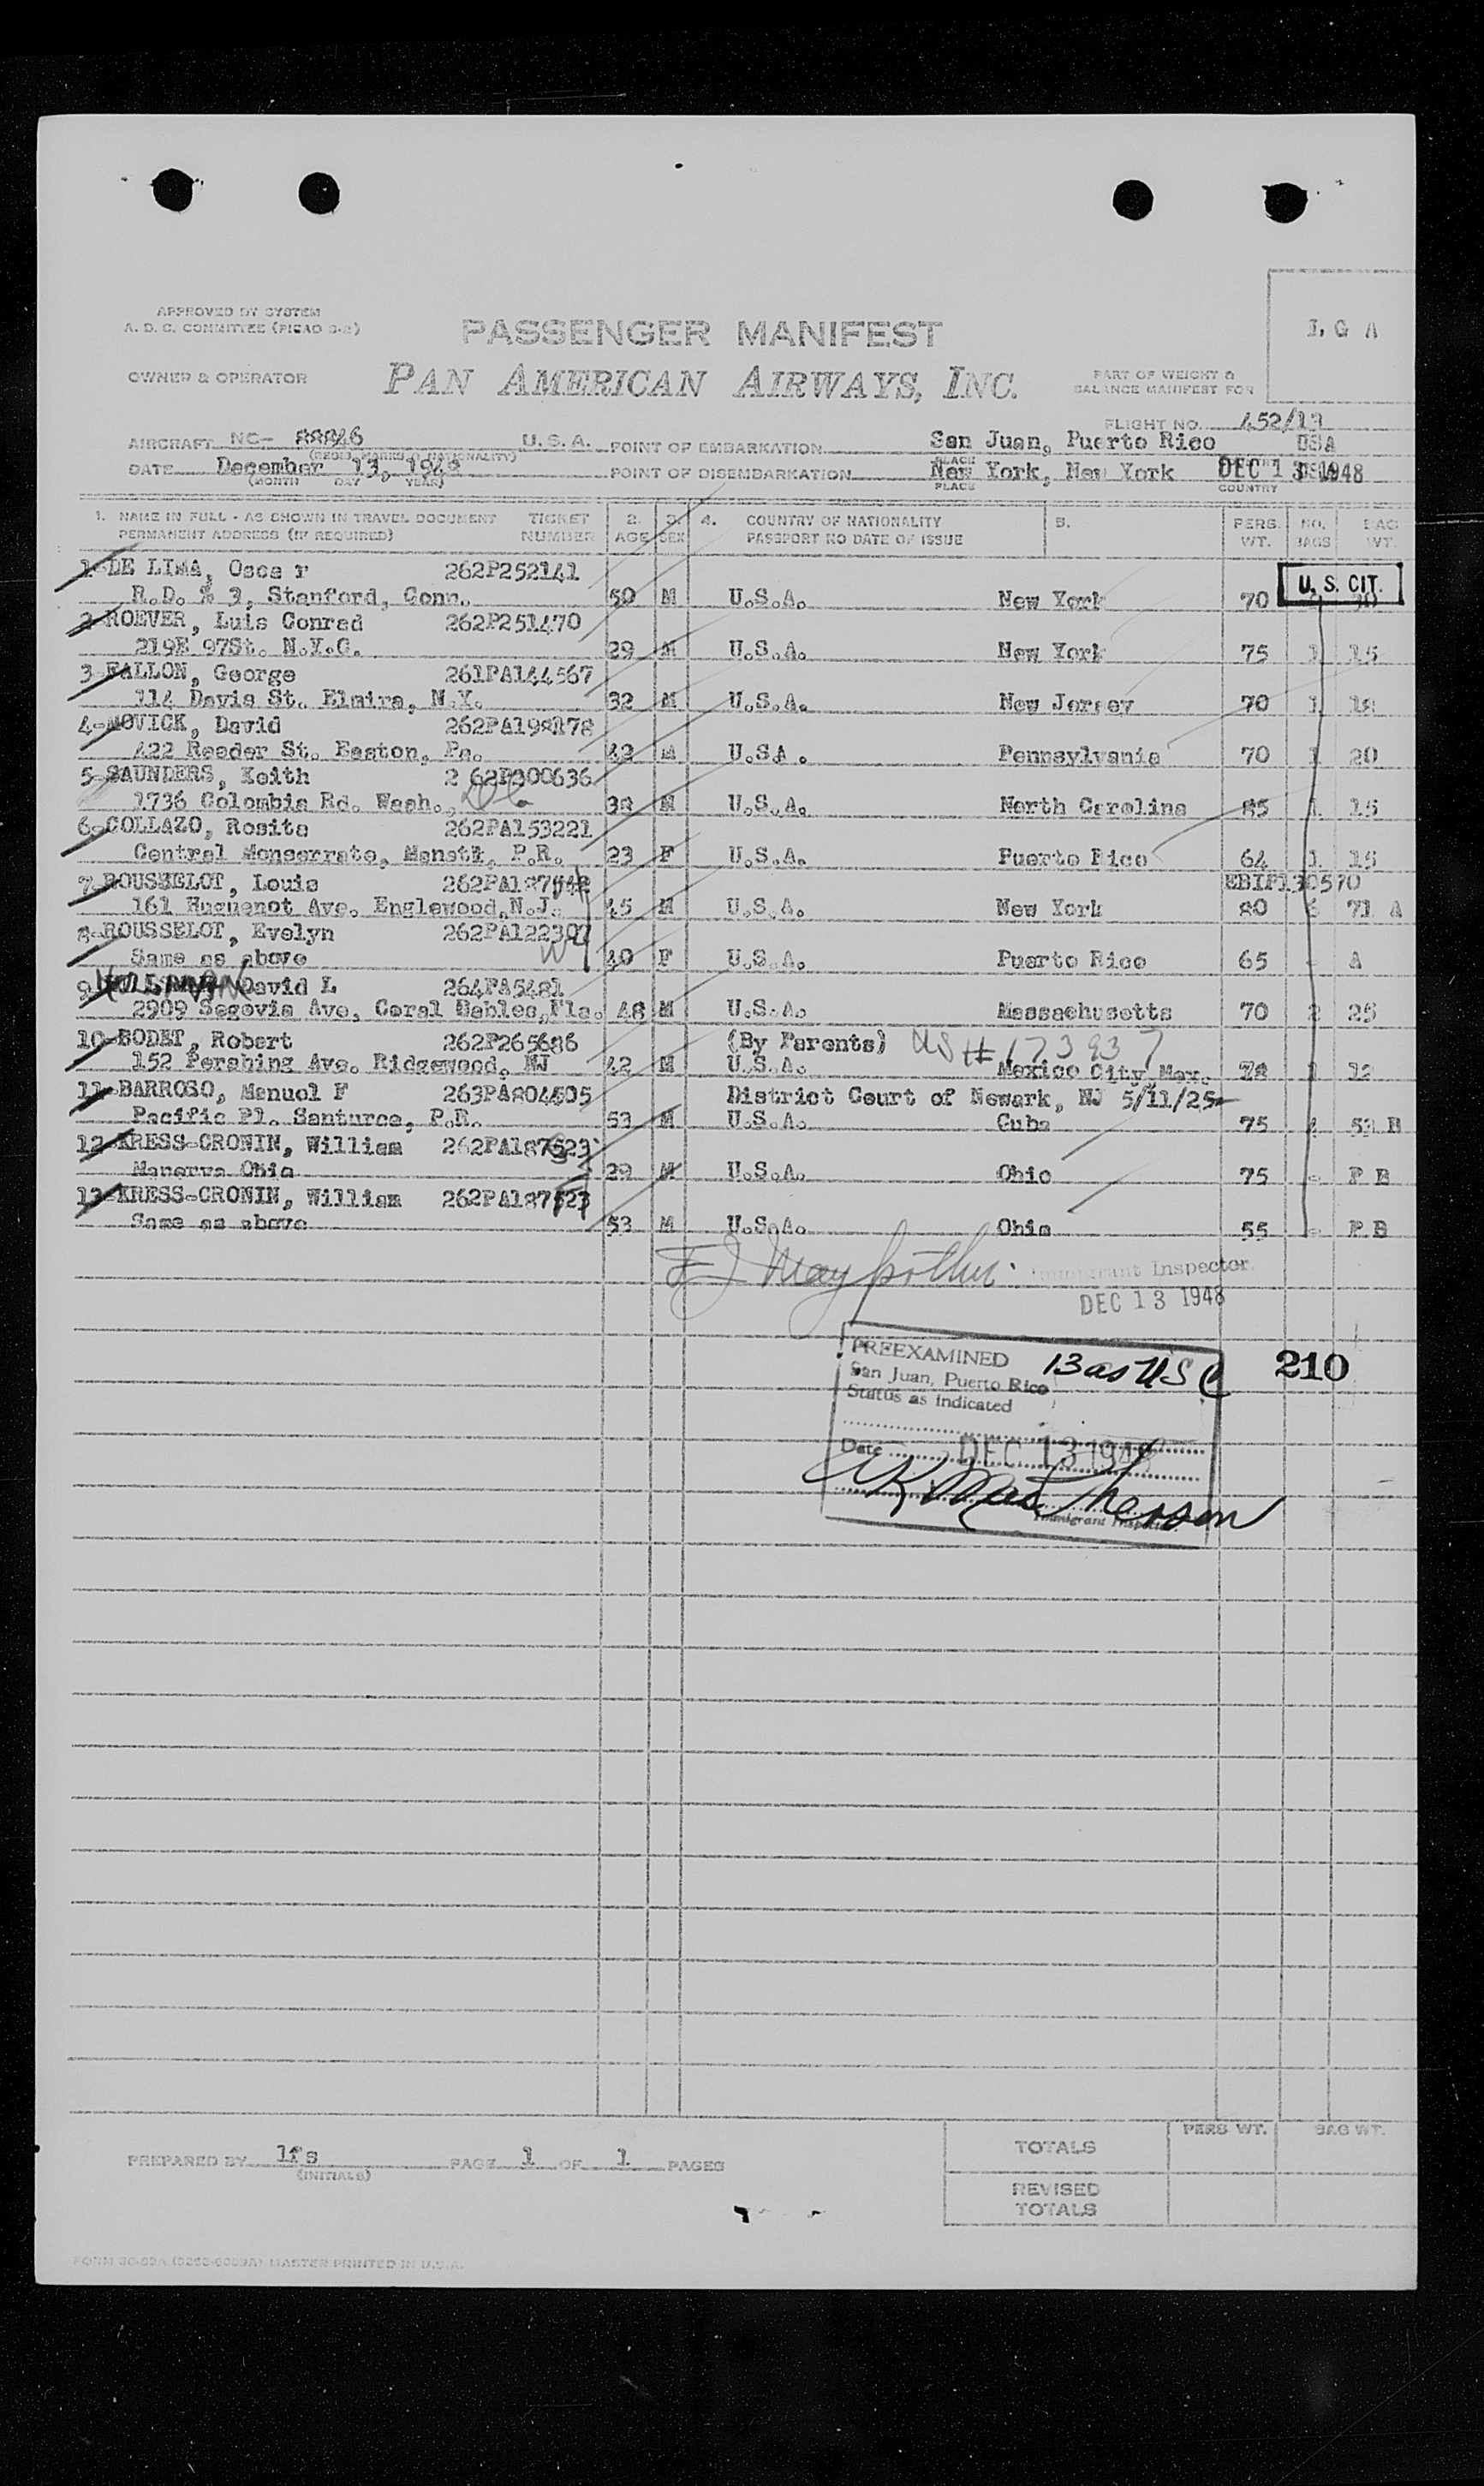 APPROVED BY SYSTEM
A. D. C. COMMITTEE (PICAO 3-2)
PASSENGER MANIFEST
I. G A
OWNER & OPERATOR
PAN AMERICAN AIRWAYS, INC.
PART OF WEIGHT &
BALANCE MANIFEST FOR
FLIGHT NO. 452/13
AIRCRAFT NC- 88846 U.S.A. POINT OF EMBARKATION San Juan, Puerto Rico USA
(REGIS. MARKS & NATIONALITY) PLACE
DATE December 13, 1948 POINT OF DISEMBARKATION New York, New York DEC 13 1948
(MONTH DAY YEAR) PLACE COUNTRY
1. NAME IN FULL - AS SHOWN IN TRAVEL DOCUMENT TICKET 2. 3. 4. COUNTRY OF NATIONALITY 5. PERS. NO. BAG
PERMANENT ADDRESS (IF REQUIRED) NUMBER AGE SEX PASSPORT NO DATE OF ISSUE WT. BAGS WT.
1-DE LIMA, Osca r 262P252141
U. S. CIT.
R.D. # 3, Stanford, Conn. 50 M U.S.A. New York 70
2-ROEVER, Luis Conrad 262P251470
219E 97St. N.Y.C. 29 M U.S.A. New York 75 1 15
3-FALLON, George 261PA144567
114 Davis St. Elmira, N.Y. 32 M U.S.A. New Jersey 70 1 18
4-NOVICK, David 262PA198178
422 Reeder St. Easton, Pa. 42 M U.SA . Pennsylvania 70 1 20
5-SAUNDERS, Keith 2 62P300636
1736 Colombia Rd. Wash., DC 38 M U.S.A. North Carolina 85 1 15
6-COLLAZO, Rosita 262PA153221
Central Monserrate, Manati, P.R. 23 F U.S.A. Puerto Rico 64 1 15
7-ROUSSELOT, Louis EBIF130570
161 Huguenot Ave. Englewood,N.J. 45 M U.S.A. New York 80 6 71 A
8-ROUSSELOT, Evelyn
Same as above 40 F U.S.A. Puerto Rico 65 - A
9 David L 264PA5481
2909 Segovia Ave, Coral Gables,Fla. 48 M U.S.A. Massachusetts 70 2 25
10-BODET, Robert 262P265686 (By Parents) US # 173937
152 Pershing Ave. Ridgewood, NJ 42 M U.S.A. Mexico City Mex. 78 1 12
11-BARROSO, Manuel F 263PA804505 District Court of Newark, NJ 5/11/25
Pacific Pl. Santurce, P.R. 53 M U.S.A. Cuba 75 53 B
12-KRESS-CRONIN, William 262PA187523
Manerva Ohio 29 M U.S.A. Ohio 75 - P B
13-KRESS-CRONIN, William
Same as above 53 M U.S.A. Ohio 55 - P B
Immigrant Inspector
DEC 13 1948
PREEXAMINED 13 as USC
210
San Juan, Puerto Rico
Status as indicated
Date DEC 13 1948
Immigrant Inspector
PREPARED BY lfs PAGE 1 OF 1 PAGES
(INITIALS)
PERS WT. BAG WT.
TOTALS
REVISED
TOTALS
MASTER PRINTED IN U.S.A.